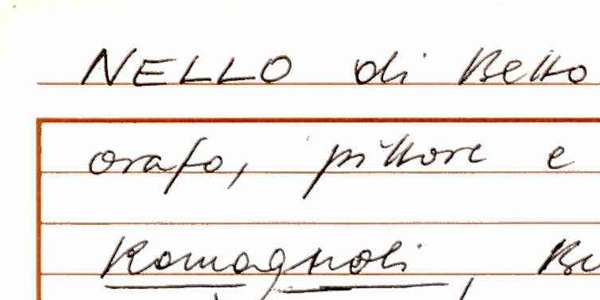 NELLO di Betto
orafo, pittore e
Romagnoli,